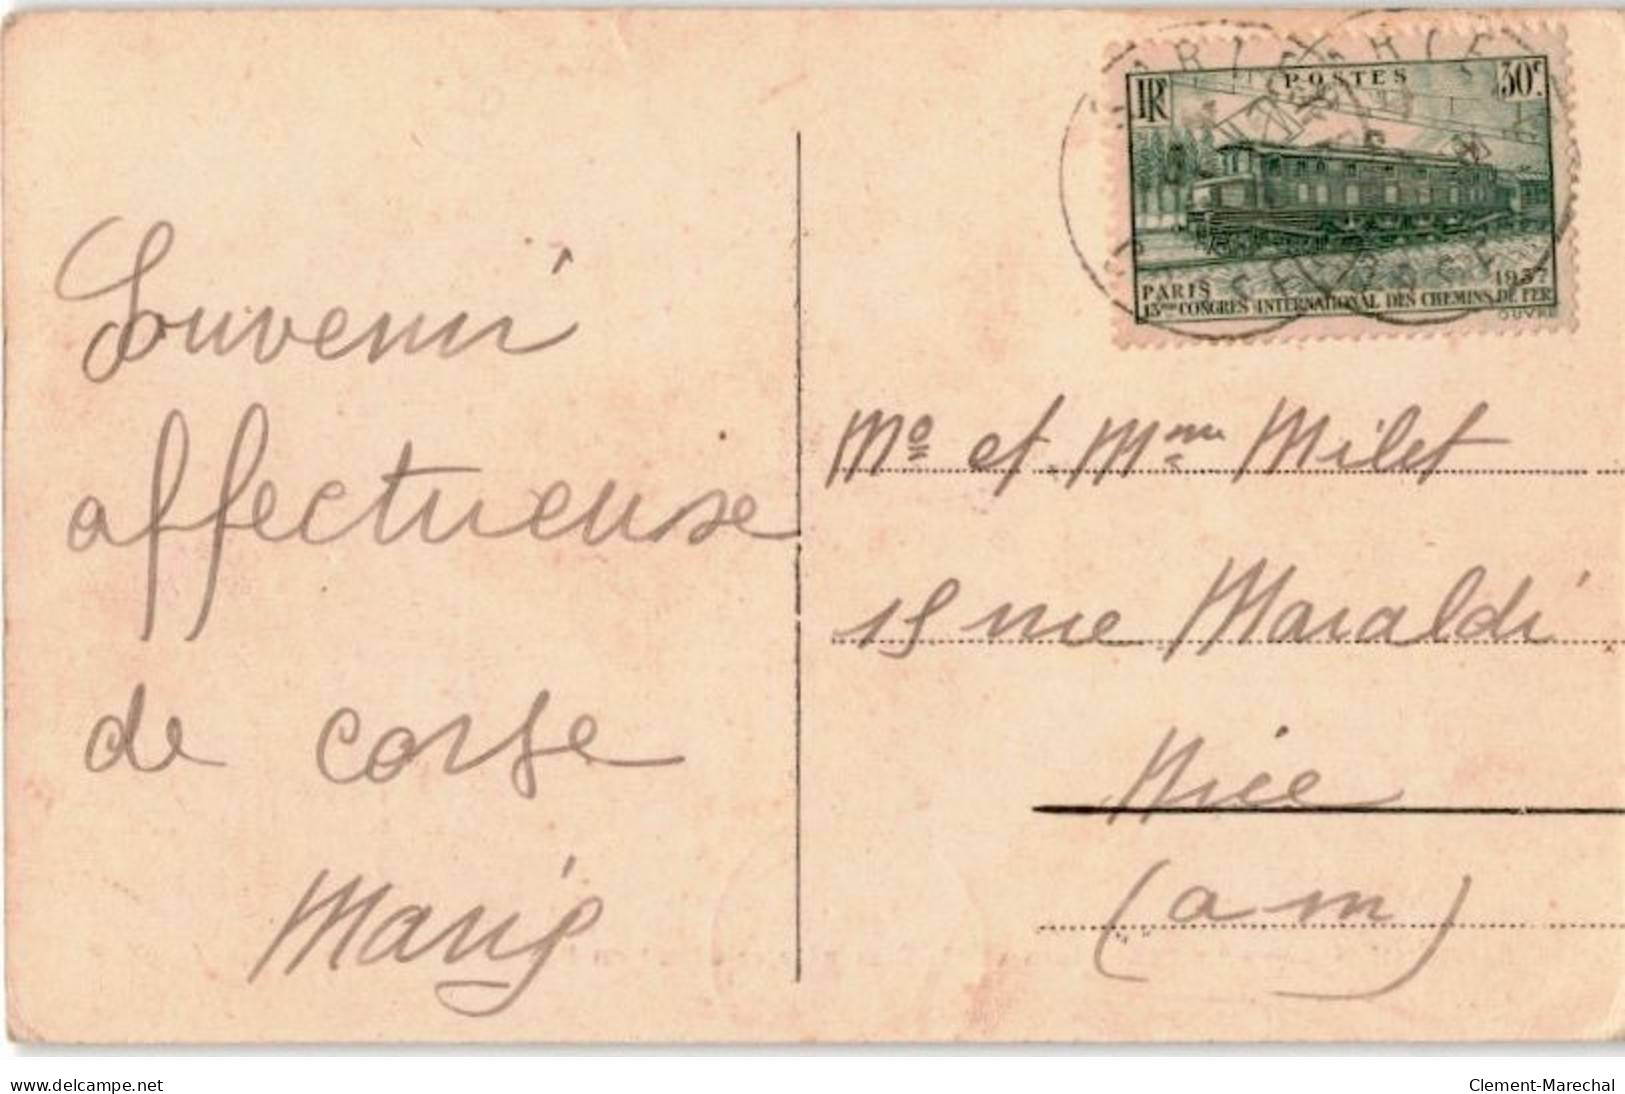 Souvenir
affectueuse
de corse
RF POSTES 30c.
PARIS 1937
13ème CONGRES INTERNATIONAL DES CHEMINS DE FER
OUVRÉ
Mo et Mme Milet
15 rue Maraldi
Nice
(am)
www.delcampe.net
Clement-Marechal